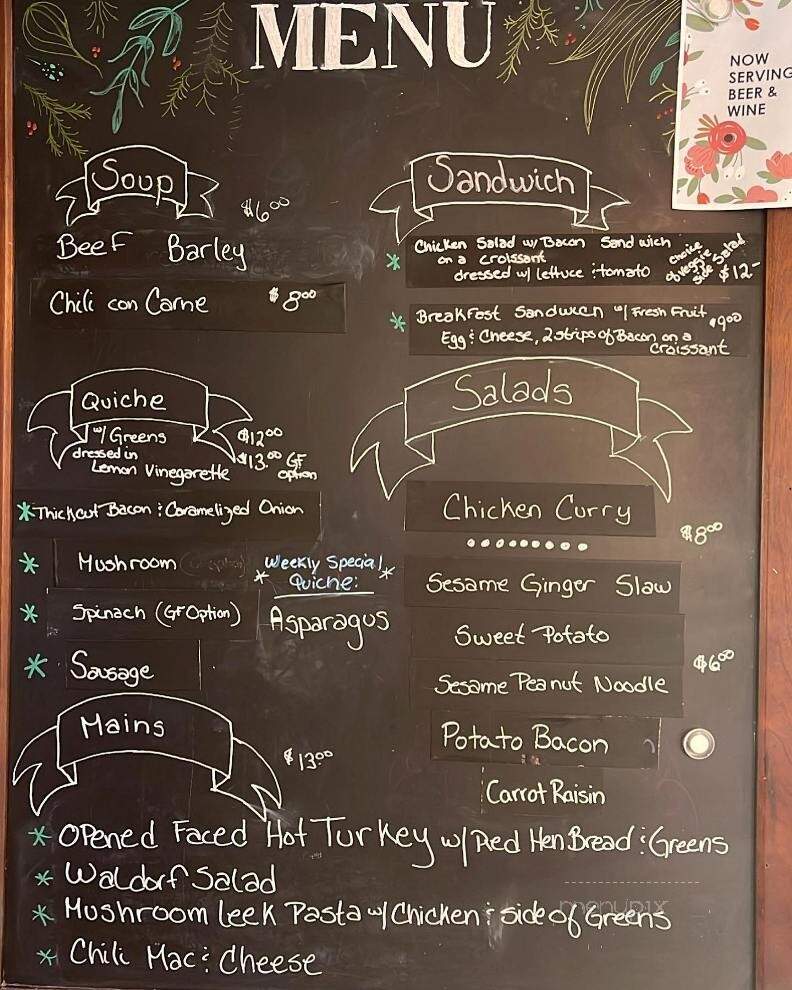 MENU
NOW
SERVING
BEER &
WINE
Soup
$6.00
Beef Barley
Chili con Carne $8.00
Sandwich
* Chicken Salad w/ Bacon Sandwich
on a croissant
dressed w/ lettuce & tomato
choice
of veggie
side salad
$12-
* Breakfast Sandwich w/ Fresh Fruit $9.00
Egg & Cheese, 2 strips of Bacon on a
Croissant
Quiche
w/ Greens
dressed in
Lemon Vinegarette
$12.00
$13.00 GF
option
* Thickcut Bacon & Caramelized Onion
* Mushroom
* Spinach (GF Option)
* Sausage
* Weekly Special *
Quiche:
Asparagus
Salads
Chicken Curry
$8.00
Sesame Ginger Slaw
Sweet Potato
$6.00
Sesame Peanut Noodle
Potato Bacon
Carrot Raisin
Mains
$13.00
* Opened Faced Hot Turkey w/ Red Hen Bread & Greens
* Waldorf Salad
* Mushroom leek Pasta w/ Chicken & side of Greens
* Chili Mac & Cheese
menupix